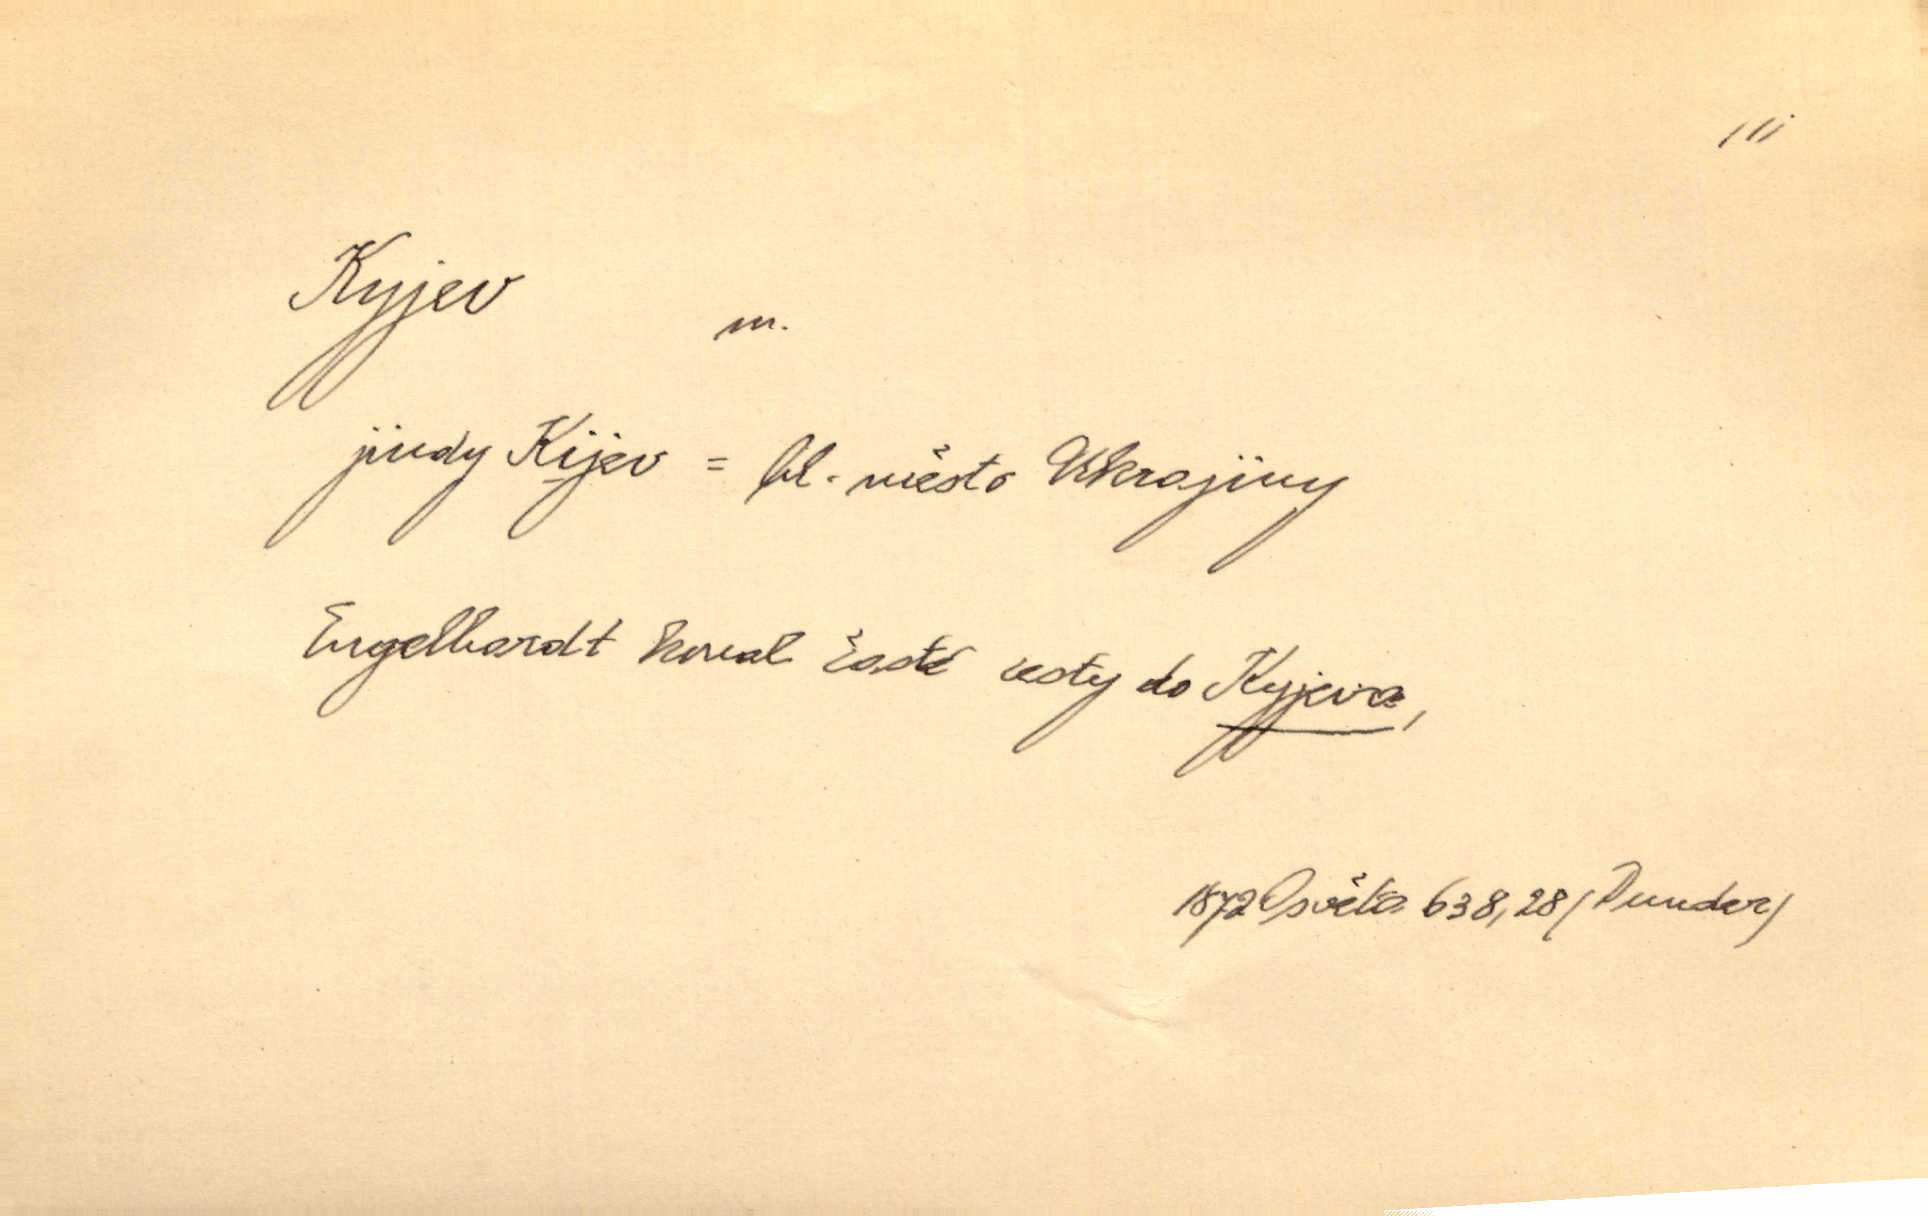 Kyjev
m.
jindy Kijev = hl. město Ukrajiny
Engelhardt konal časté cesty do Kyjeva,
1872 Osvěta 638,28 (Dunder)